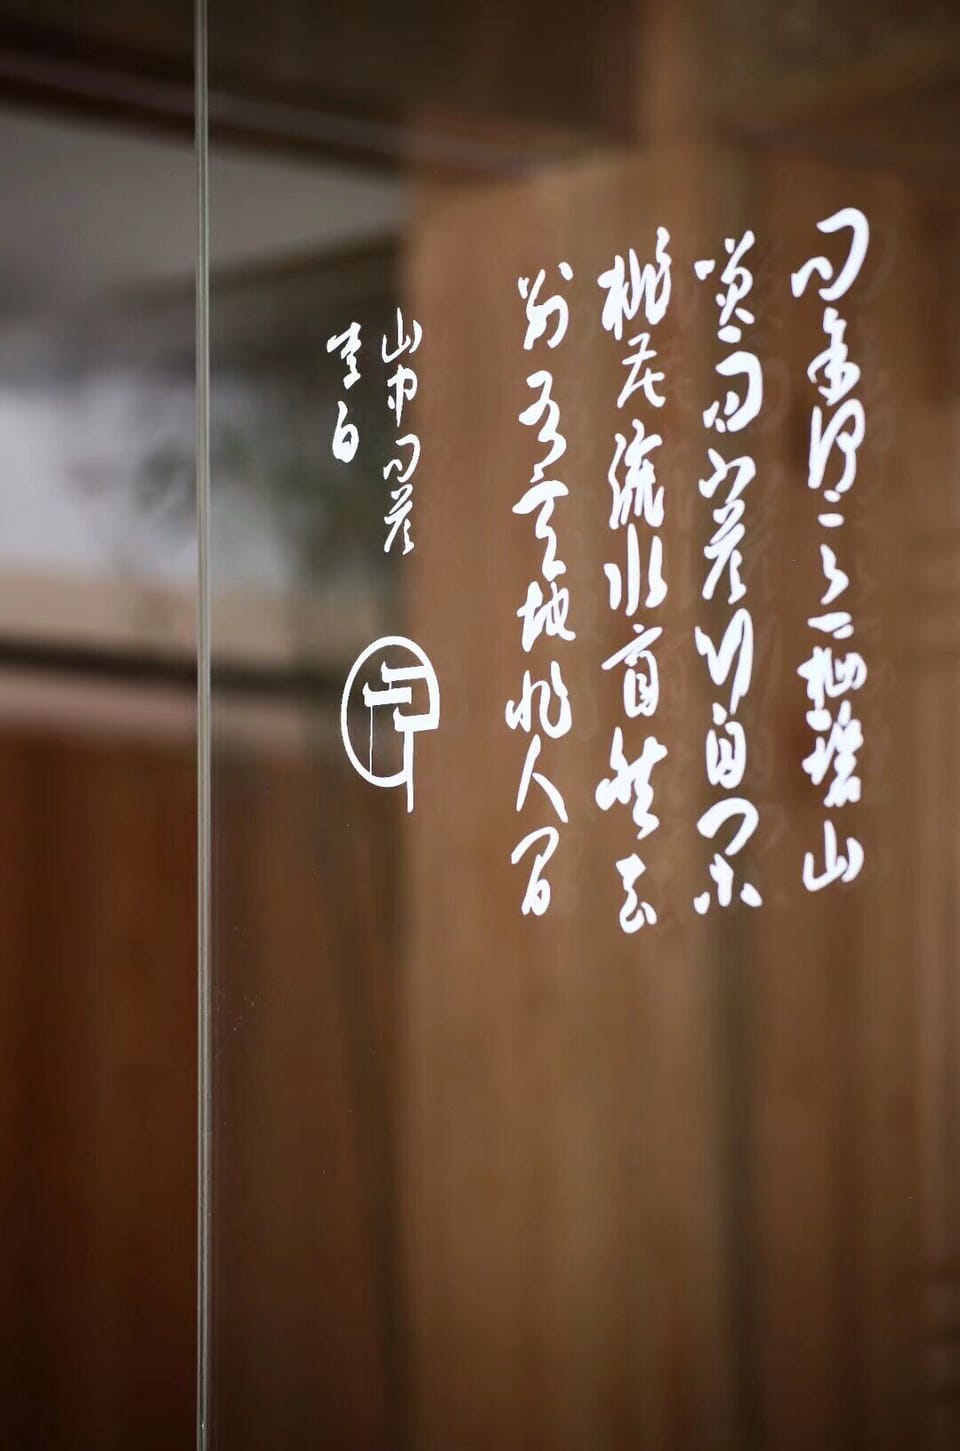 問余何意栖碧山
笑而不答心自閑
桃花流水窅然去
別有天地非人間
山中問答
李白